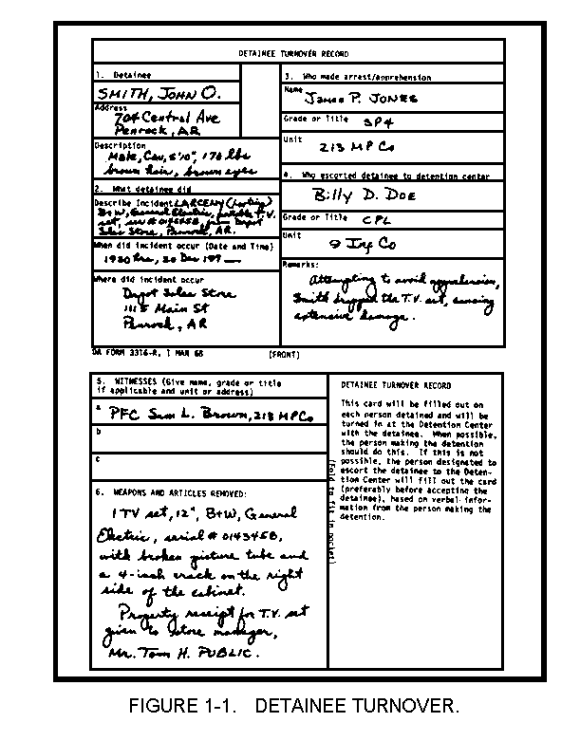 DETAINEE TURNOVER RECORD
1. Detainee
SMITH, JOHN O.
Address
704 Central Ave
Penrock, AR
Description
Male, Cau, 5'10", 176 lbs
brown hair, brown eyes
2. What detainee did
Describe Incident LARCENY (Looting)
B+W, General Electric, portable T.V.
set, ser # 0143458, from Depot
Sales Store, Penrock, AR.
When did incident occur (Date and Time)
1930 hrs, 20 Dec 197__
Where did incident occur
Depot Sales Store
1115 Main St
Penrock, AR
3. Who made arrest/apprehension
Name James P. JONES
Grade or Title SP4
Unit
213 MP Co
4. Who escorted detainee to detention center
Billy D. DOE
Grade or Title CPL
Unit
9 Inf Co
Remarks:
Attempting to avoid apprehension,
Smith dropped the T.V. set, causing
extensive damage.
DA FORM 3316-R, 1 MAR 68 (FRONT)
5. WITNESSES (Give name, grade or title
if applicable and unit or address)
a PFC Sam L. Brown, 213 MP Co
b
c
6. WEAPONS AND ARTICLES REMOVED:
1 TV set, 12", B+W, General
Electric, serial # 0143458,
with broken picture tube and
a 4-inch crack on the right
side of the cabinet.
Property receipt for T.V. set
given to store manager,
Mr. Tom H. PUBLIC.
(Fold to fit in pocket)
DETAINEE TURNOVER RECORD
This card will be filled out on
each person detained and will be
turned in at the Detention Center
with the detainee. When possible,
the person making the detention
should do this. If this is not
possible, the person designated to
escort the detainee to the Deten-
tion Center will fill out the card
(preferably before accepting the
detainee), based on verbal infor-
mation from the person making the
detention.
FIGURE 1-1. DETAINEE TURNOVER.